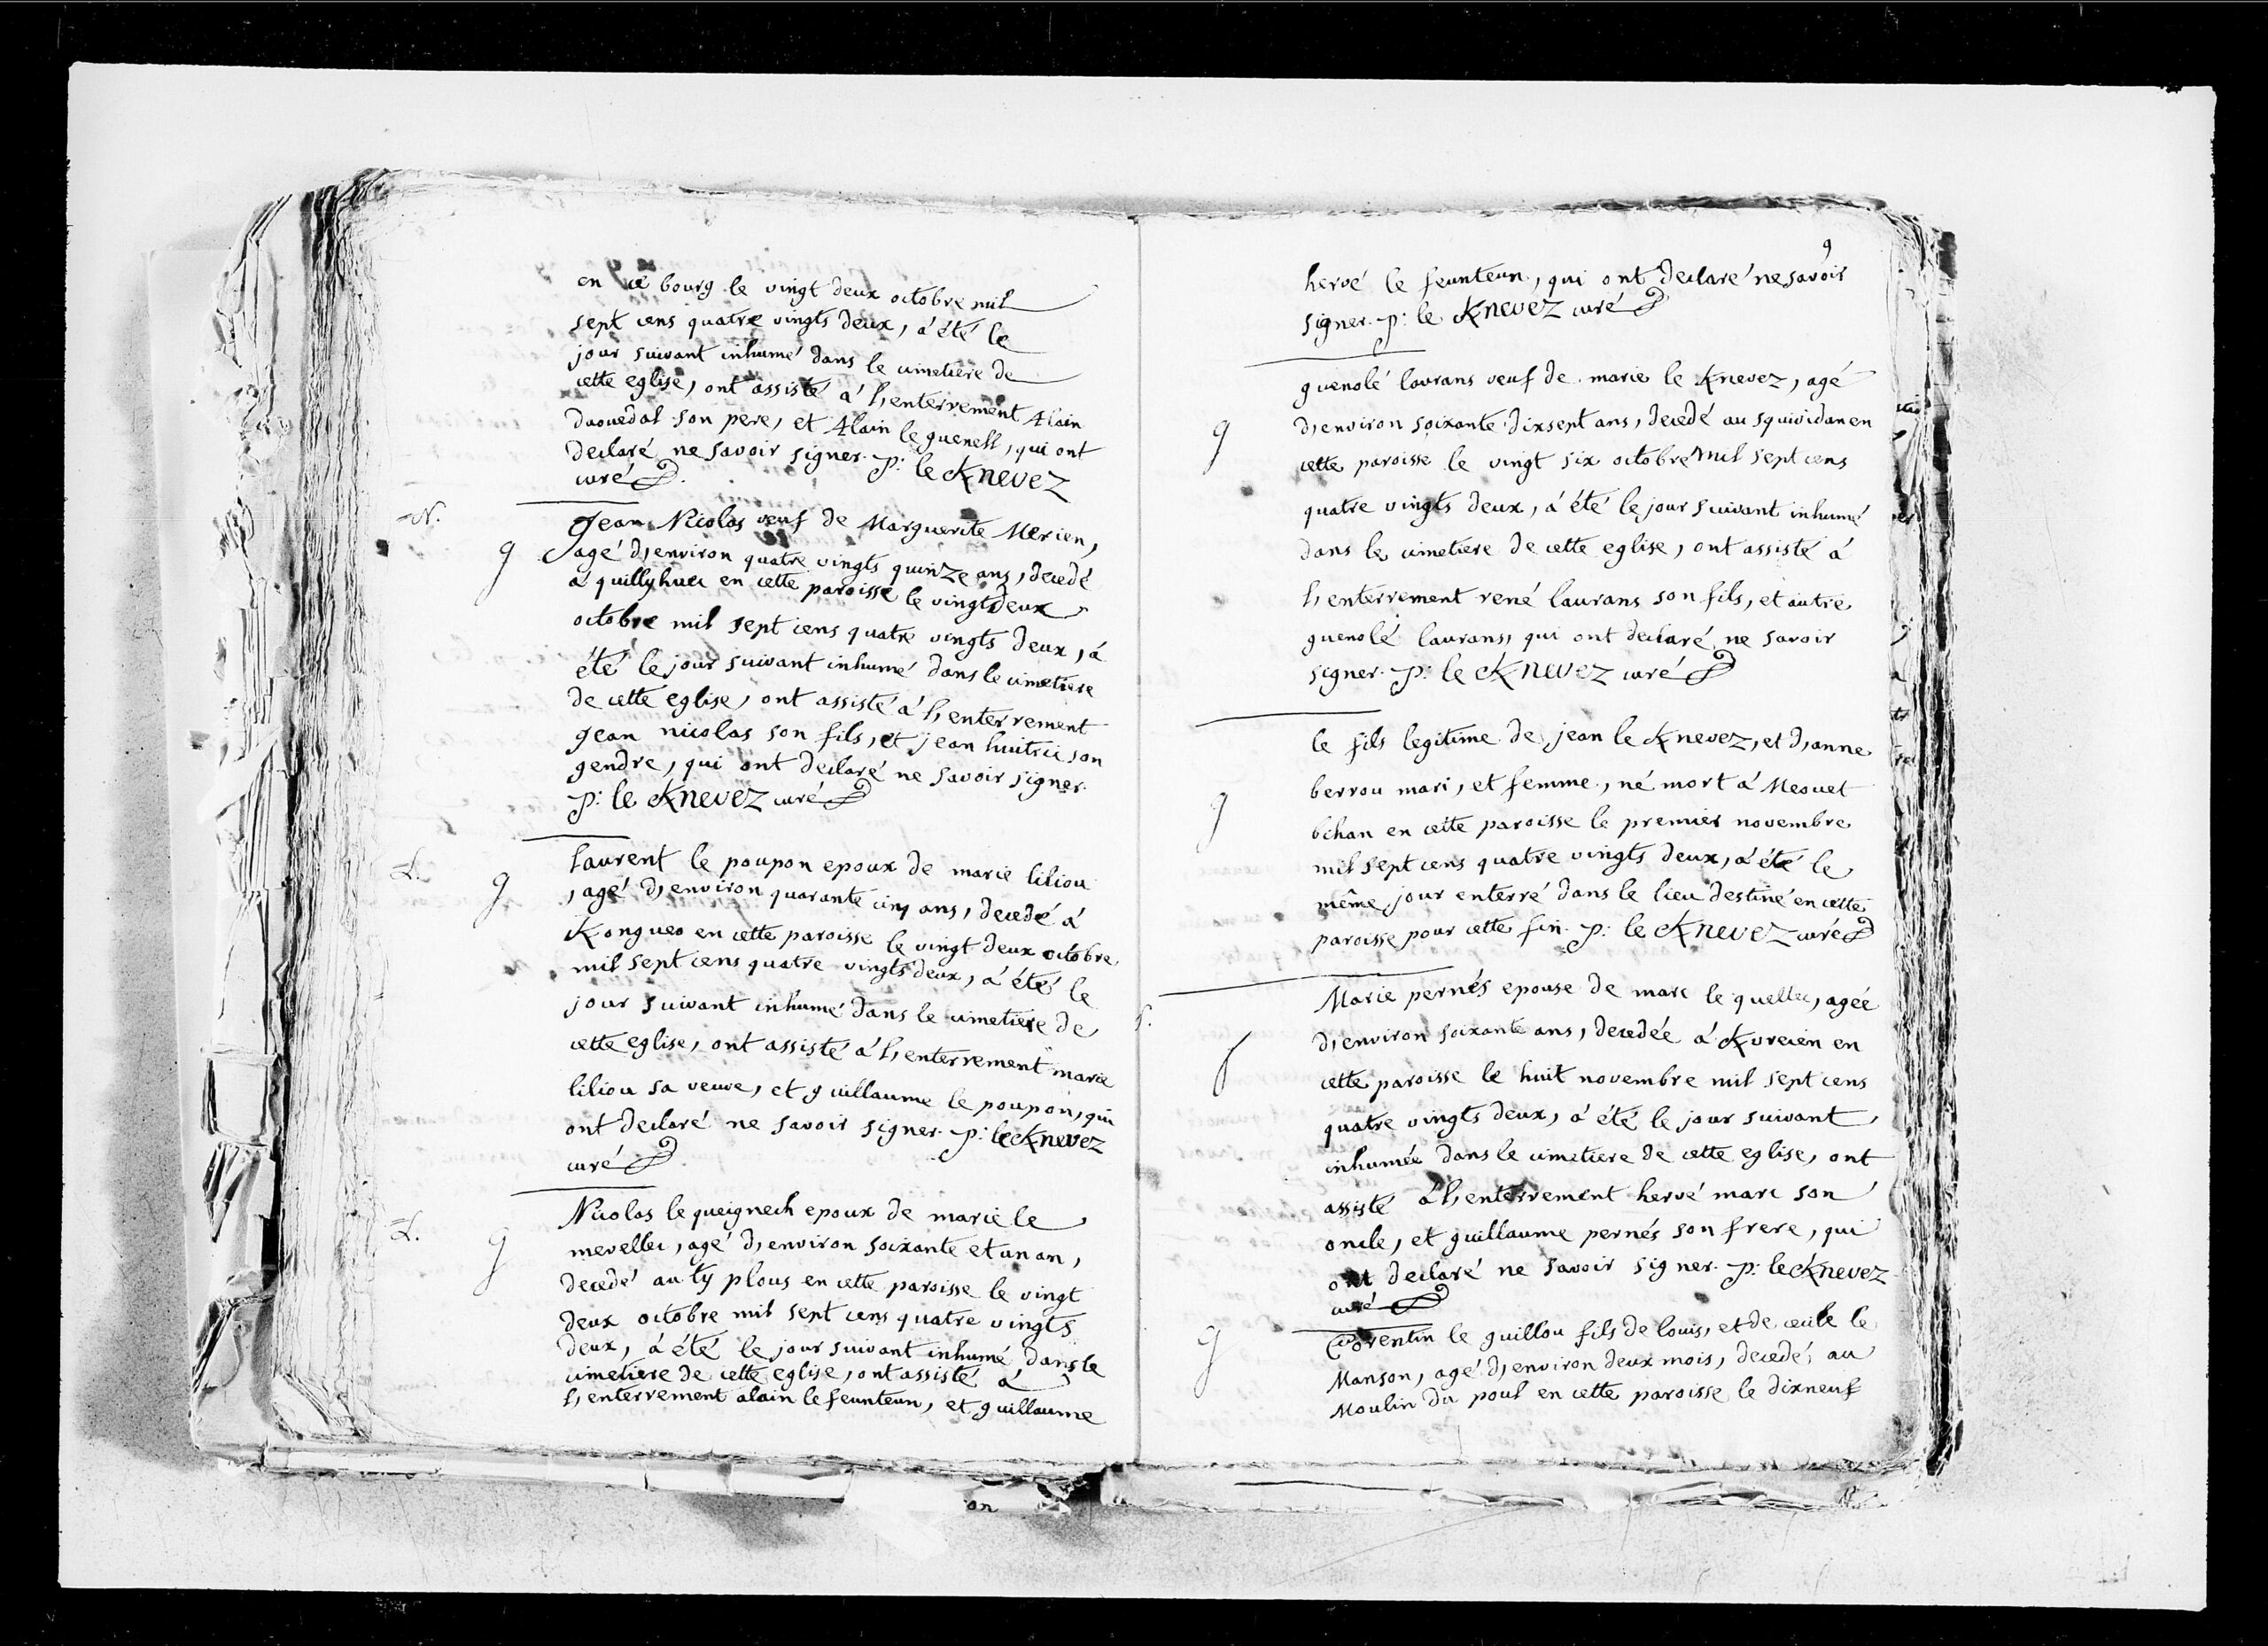 en ce bourg le vingt deux octobre mil
sept cens quatre vingts deux, a été le
jour suivant inhumé dans le cimetiere de
cette eglise, ont assisté a l'enterrement Alain
daouedal son pere, et Alain le guenell, qui ont
declaré ne savoir signer. p: le Knevez
curé
N.
Jean Nicolas veuf de Marguerite Merien,
g agé d'environ quatre vingts quinze ans, decedé
a quillyhuec en cette paroisse le vingt deux
octobre mil sept cens quatre vingts deux, a
été le jour suivant inhumé dans le cimetiere
de cette eglise, ont assisté a l'enterrement
Jean nicolas son fils, et jean huitric son
gendre, qui ont declaré ne savoir signer.
p: le Knevez curé
L.
Laurent le poupon epoux de marie liliou
g , agé d'environ quarante cinq ans, decedé a
Kongueo en cette paroisse le vingt deux octobre
mil sept cens quatre vingts deux, a été le
jour suivant inhumé dans le cimetiere de
cette eglise, ont assisté a l'enterrement marie
liliou sa veuve, et guillaume le poupon, qui
ont declaré ne savoir signer. p: le Knevez
curé
L.
Nicolas le queignech epoux de marie le
g mevellec, agé d'environ soixante et un an,
decedé au ty plous en cette paroisse le vingt
deux octobre mil sept cens quatre vingts
deux, a été le jour suivant inhumé dans le
cimetiere de cette eglise, ont assisté a
l'enterrement alain le feunteun, et guillaume
9
hervé le feunteun, qui ont declaré ne savoir
signer. p: le Knevez curé
guenolé laurans veuf de marie le Knevez, agé
g d'environ soixante dixsept ans, decedé au squividan en
cette paroisse le vingt six octobre mil sept cens
quatre vingts deux, a été le jour suivant inhumé
dans le cimetiere de cette eglise, ont assisté a
l'enterrement rené laurans son fils, et autre
guenolé laurans, qui ont declaré ne savoir
signer. p: le Knevez curé
le fils legitime de jean le Knevez, et d'anne
g berrou mari, et femme, né mort a Mesuet
bihan en cette paroisse le premier novembre
mil sept cens quatre vingts deux, a été le
même jour enterré dans le lieu destiné en cette
paroisse pour cette fin. p: le Knevez curé
Marie pernés epouse de marc le quellec, agée
f d'environ soixante ans, decedée a Kvreien en
cette paroisse le huit novembre mil sept cens
quatre vingts deux, a été le jour suivant
inhumée dans le cimetiere de cette eglise, ont
assisté a l'enterrement hervé marc son
oncle, et guillaume pernés son frere, qui
ont declaré ne savoir signer. p: le Knevez
curé
g Corentin le guillou fils de louis, et de cecile le
Manson, agé d'environ deux mois, decedé, au
Moulin du poul en cette paroisse le dixneuf